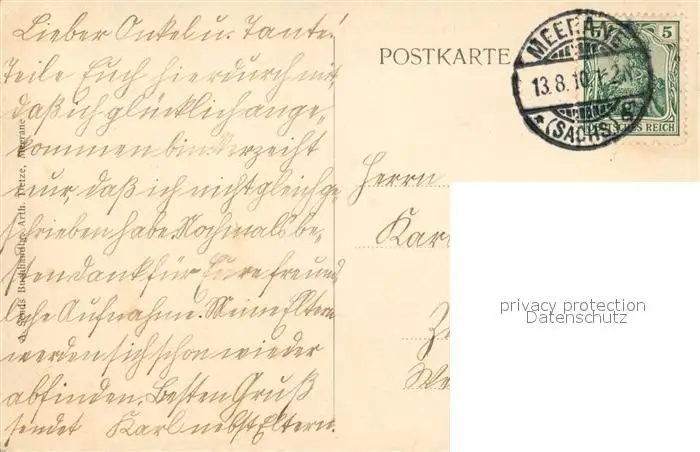 Lieber Onkel u. Tante!
Teile Euch hierdurch mit,
daß ich glücklich ange-
kommen bin. Verzeiht
nur, daß ich nicht gleich ge-
schrieben habe. Nochmals be-
sten dank für Eure freund-
liche Aufnahme. Meine Eltern
werden sich schon wieder
abfinden. Besten Gruß
sendet Karl nebst Eltern.
Buchhandlg. Arth. Tietze, Meerane
POSTKARTE
MEERANE
13.8.10.1-2N
* (SACHS.)
5
DEUTSCHES REICH
Herrn
Kar
privacy protection
Datenschutz